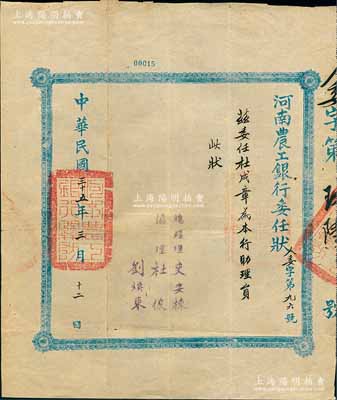 上海陽明拍賣
00015
河南農工銀行委任狀
委字第九六號
茲委任杜成章為本行助理員
此狀
總經理 史安棟
協理 杜俊
劉煥東
中華民國三十五年三月十二日
字第
號
上海陽明拍賣